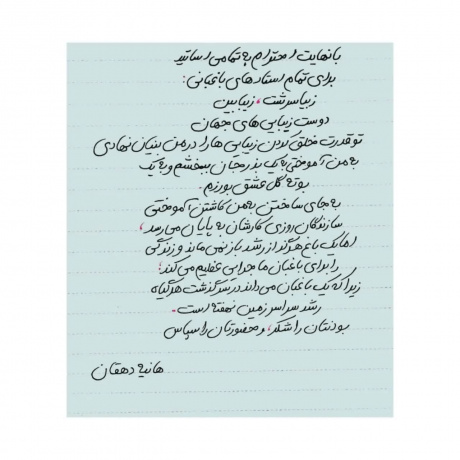 با نهایت احترام به تمامی اساتید
برای تمام استادهای باغبانی:
زیبا سرشت، زیبا بین
دوست زیبایی های جهان
تو قدرت خلق کردن زیبایی ها را در من بنیان نهادی
به من آموختی به یک بذر جان ببخشم و به یک
بوته گل عشق بورزم.
به جای ساختن به من کاشتن آموختی
سازندگان روزی کارشان به پایان می رسد،
اما یک باغ هرگز از رشد باز نمی ماند و زندگی
را برای باغبان ماجرایی عظیم می کند؛
زیرا که یک باغبان می داند در سرگذشت هر گیاه
رشد سراسر زمین نهفته است.
بودنتان را شکر، و حضورتان را سپاس
هانیه دهقان